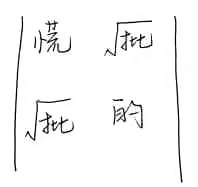 慌 √批
√批 的